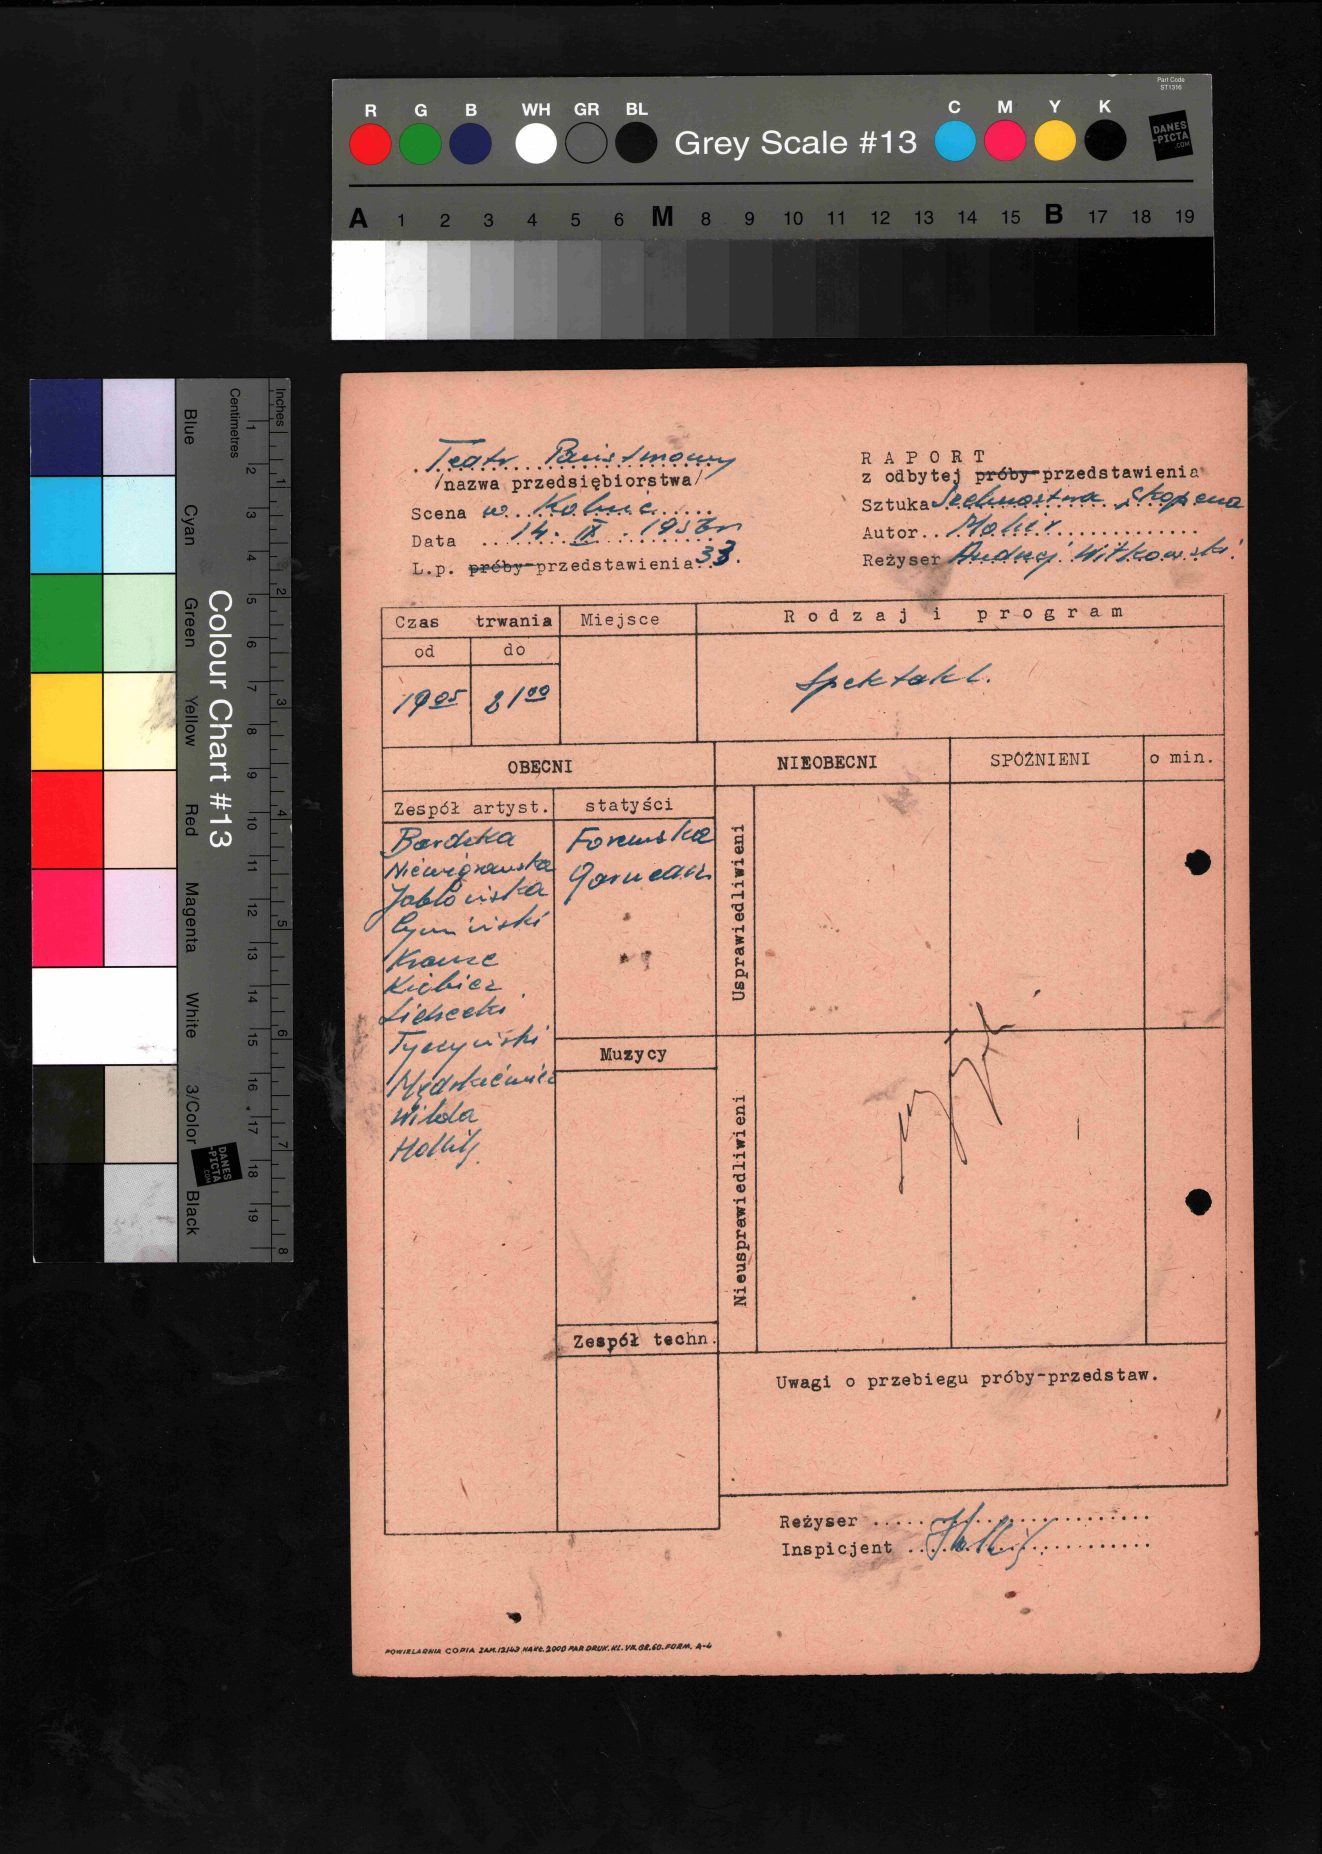 Part Code
ST1316
R G B WH GR BL Grey Scale #13 C M Y K
DANES
-PICTA
.COM
A 1 2 3 4 5 6 M 8 9 10 11 12 13 14 15 B 17 18 19
Colour Chart #13
Blue Cyan Green Yellow Red Magenta White 3/Color Black
Centimetres 1 2 3 4 5 6 7 8 9 10 11 12 13 14 15 16 17 18 19
Inches 1 2 3 4 5 6 7 8
DANES
-PICTA
.COM
Teatr
/nazwa przedsiębiorstwa/
Scena w
Data 14. IX.
L.p. próby-przedstawienia 33.
R A P O R T
z odbytej próby-przedstawienia
Sztuka Skapena
Autor Molier
Reżyser Andrzej Witkowski
Czas trwania Miejsce Rodzaj i program
od do
19 05 21 00 Spektakl.
OBECNI NIEOBECNI SPÓŹNIENI o min.
Zespół artyst. statyści
Bardzka
Jabłońska
Krause
Kiebicz
Tyczyński
Wilda
Foremska
Usprawiedliwieni
Muzycy
Nieusprawiedliwieni
Zespół techn.
Uwagi o przebiegu próby-przedstaw.
Reżyser
Inspicjent
POWIELARNIA COPIA ZAM. 12143 NAKŁ. 2000 PAR DRUK. KL. VII. GR. 60. FORM. A-4